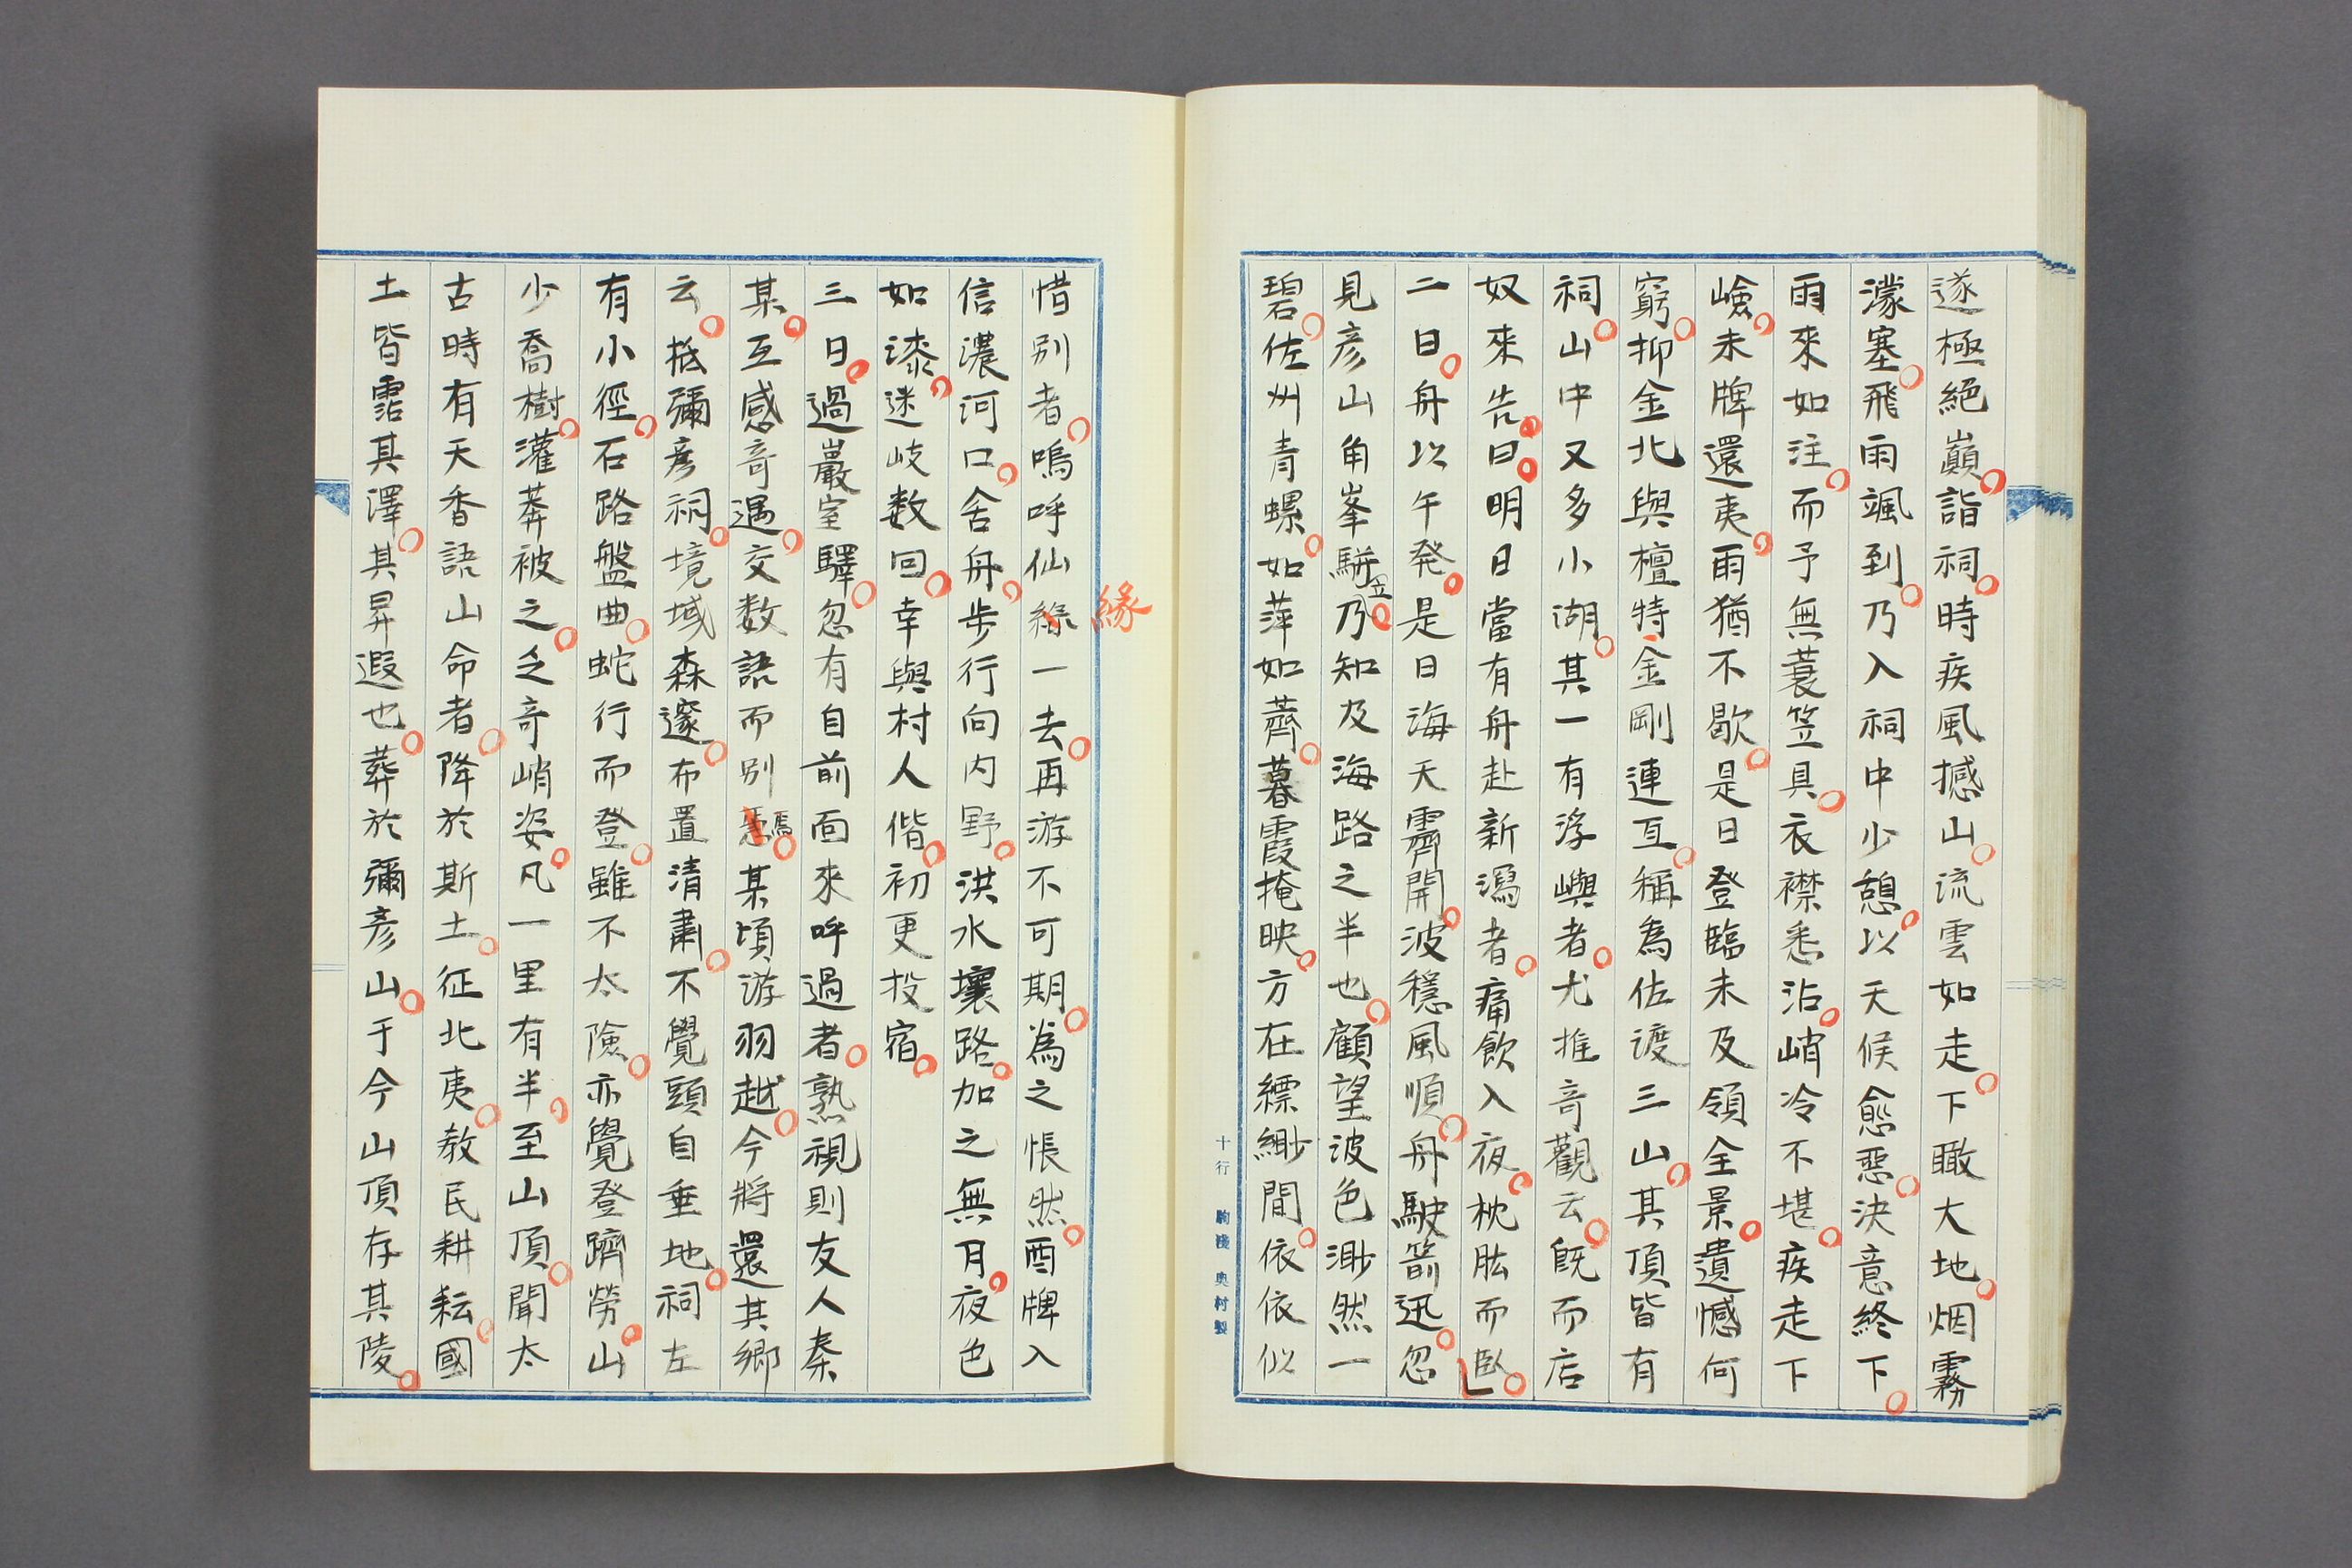 遂極絕巓詣祠時疾風撼山流雲如走下瞰大地烟霧
濛塞飛雨颯到乃入祠中少憩以天候愈惡決意終下
雨來如注而予無蓑笠具衣襟悉沾峭冷不堪疾走下
嶮未牌還夷雨猶不歇是日登臨未及領全景遺憾何
窮抑金北與檀特金剛連亙稱為佐渡三山其頂皆有
祠山中又多小湖其一有浮嶼者尤推奇觀云既而店
奴來告曰明日當有舟赴新潟者痛飲入夜枕肱而臥
二日舟以午発是日海天霽開波穩風順舟駛箭迅忽
見彥山角峯駢立乃知及海路之半也顧望波色渺然一
碧佐州青螺如萍如薺暮霞掩映方在縹緲間依依似
十行 駒淺 奥村製
緣
惜別者嗚呼仙緣一去再游不可期為之悵然酉牌入
信濃河口舍舟步行向内野洪水壞路加之無月夜色
如漆迷岐数回幸與村人偕初更投宿
三日過巖室驛忽有自前面來呼過者熟視則友人秦
某互感奇遇交数語而別焉某頃游羽越今將還其鄉
云抵彌彥祠境域森邃布置清肅不覺頭自垂地祠左
有小徑石路盤曲蛇行而登雖不太險亦覺登躋勞山
少喬樹灌莽被之乏奇峭姿凡一里有半至山頂聞太
古時有天香語山命者降於斯土征北夷教民耕耘國
土皆霑其澤其昇遐也葬於彌彥山于今山頂存其陵